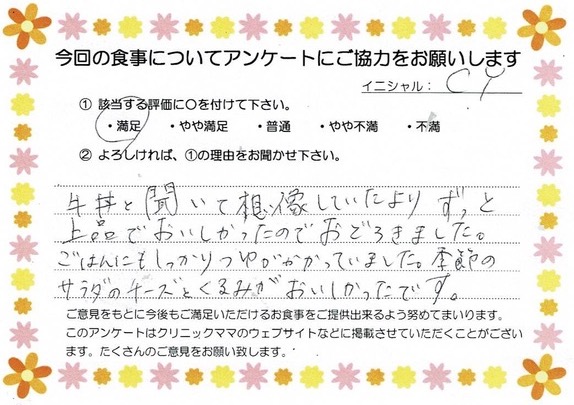 今回の食事についてアンケートにご協力をお願いします
イニシャル： CY
① 該当する評価に〇を付けて下さい。
・満足 ・やや満足 ・普通 ・やや不満 ・不満
② よろしければ、①の理由をお聞かせ下さい。
牛丼と聞いて想像していたより ずっと
上品でおいしかったのでおどろきました。
ごはんにもしっかりつゆがかかっていました。季節の
サラダのチーズとくるみがおいしかったです。
ご意見をもとに今後もご満足いただけるお食事をご提供出来るよう努めてまいります。
このアンケートはクリニックママのウェブサイトなどに掲載させていただくことがござい
ます。たくさんのご意見をお願い致します。